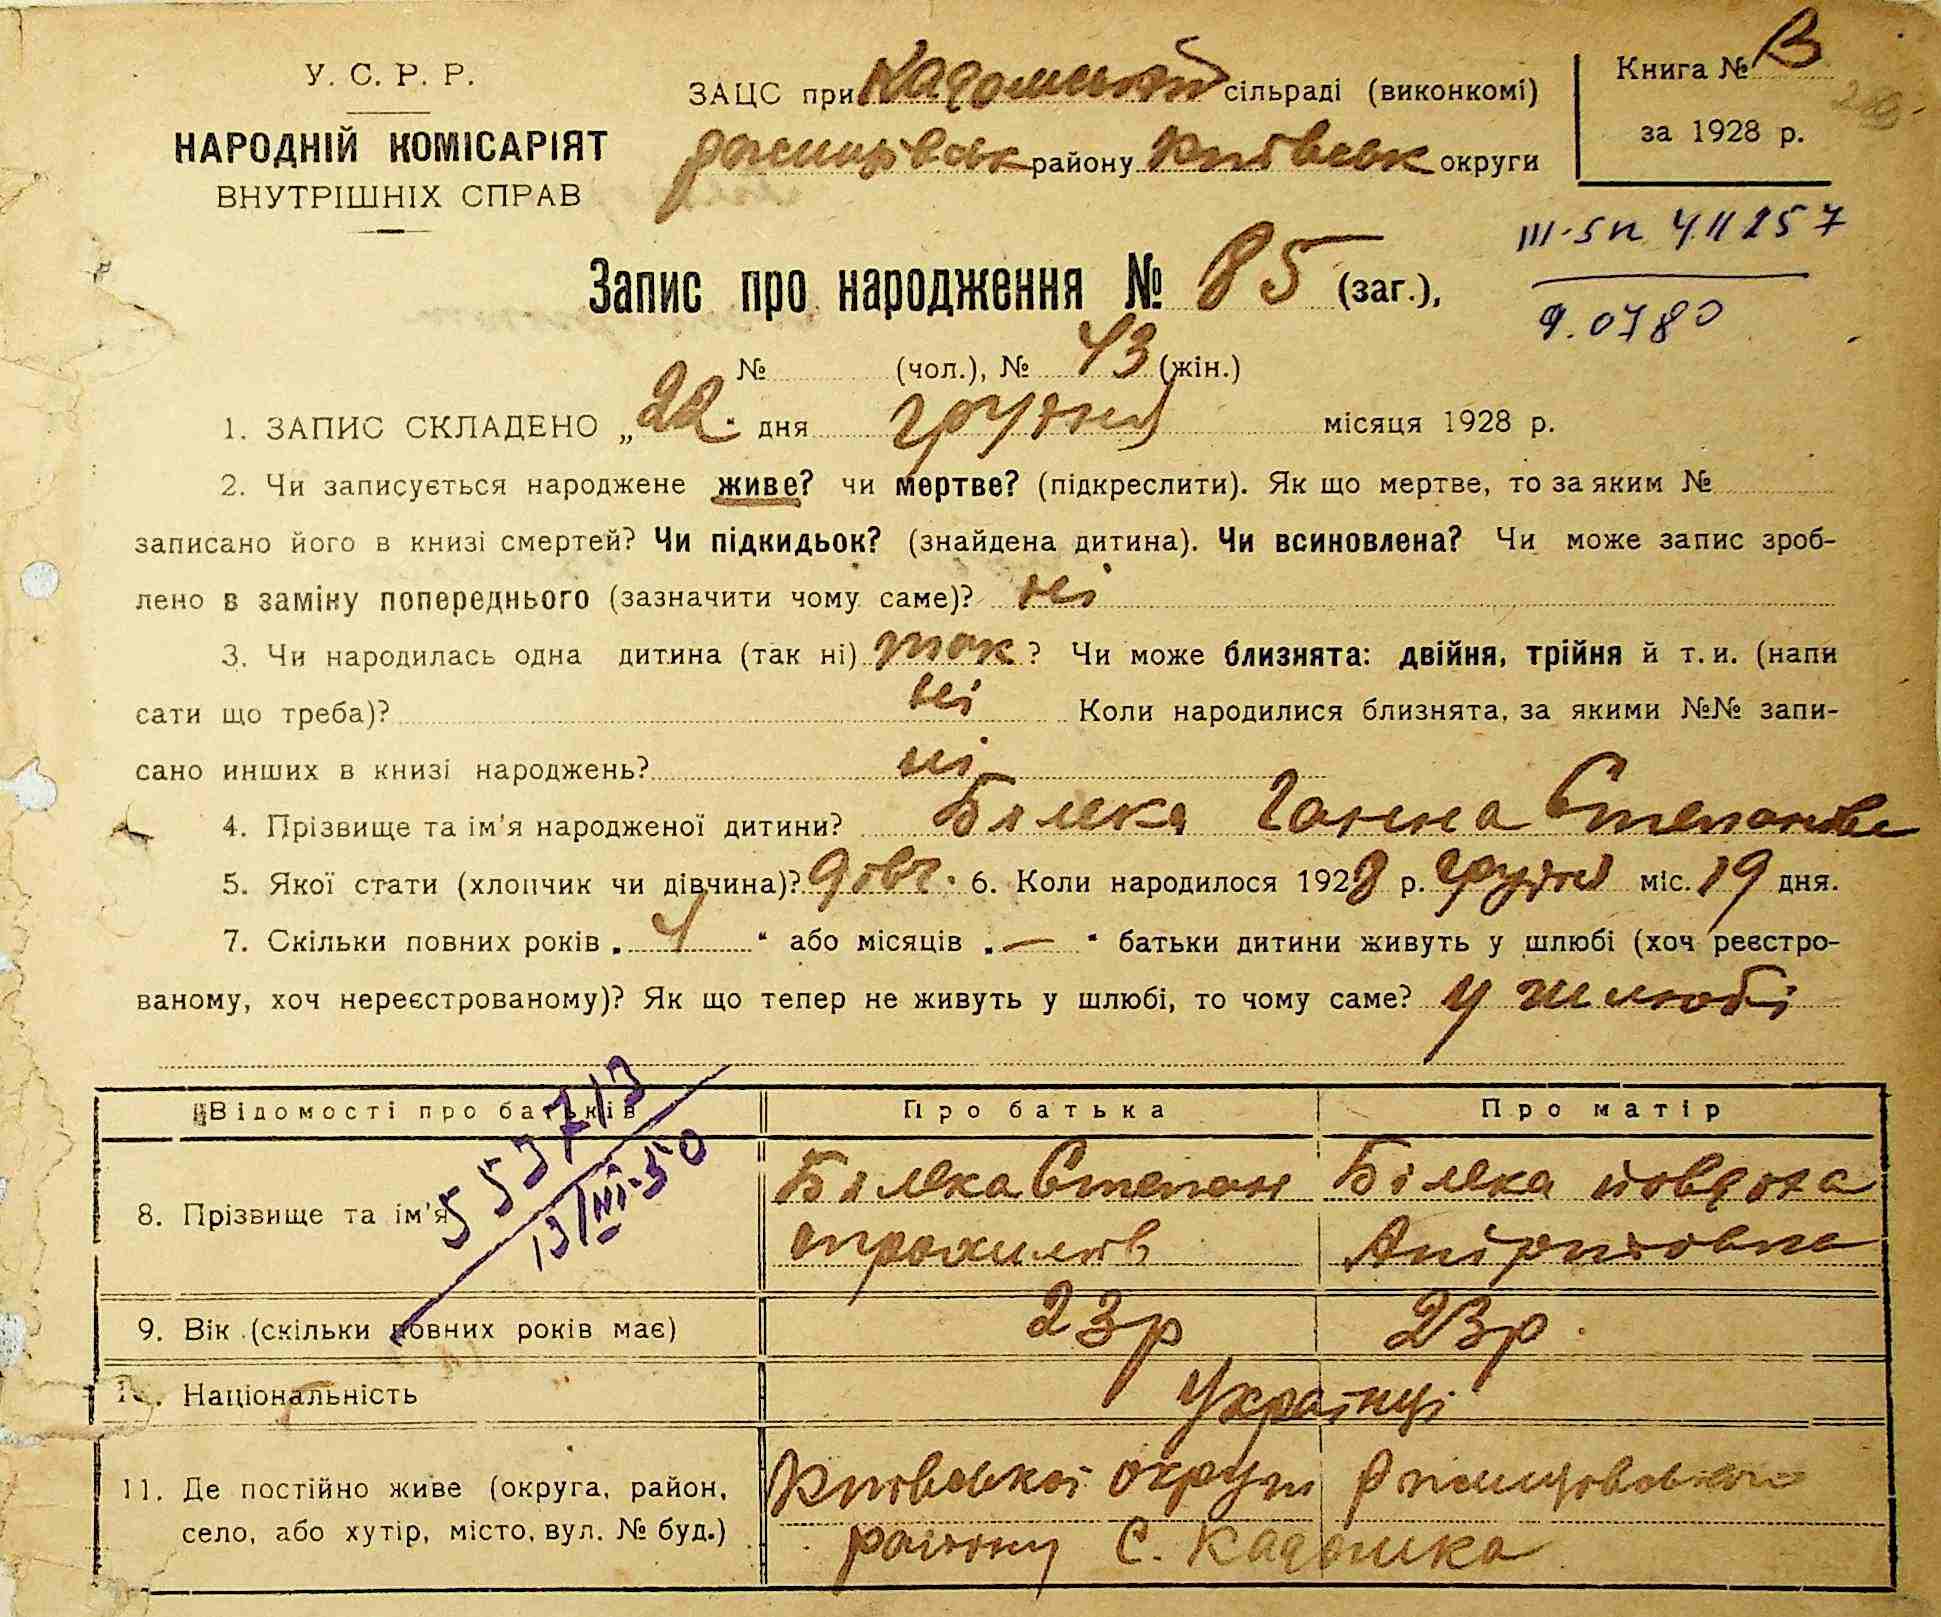 У. С. Р. Р.
НАРОДНІЙ КОМІСАРІЯТ
ВНУТРІШНІХ СПРАВ
ЗАЦС при Кадомській сільраді (виконкомі)
Ржищівськ району Київськ округи
Книга №
за 1928 р.
Запис про народження № 85 (заг.),
№ (чол.), № 43 (жін.)
1. ЗАПИС СКЛАДЕНО „22“ дня грудня місяця 1928 р.
2. Чи записується народжене живе? чи мертве? (підкреслити). Як що мертве, то за яким №
записано його в книзі смертей? Чи підкидьок? (знайдена дитина). Чи всиновлена? Чи може запис зроб-
лено в заміну попереднього (зазначити чому саме)? ні
3. Чи народилась одна дитина (так ні) так? Чи може близнята: двійня, трійня й т. и. (напи
сати що треба)? ні Коли народилися близнята, за якими №№ запи-
сано инших в книзі народжень? ні
4. Прізвище та ім'я народженої дитини? Біляка Ганна Степанівна
5. Якої стати (хлопчик чи дівчина)? дівч. 6. Коли народилося 1928 р. грудня міс. 19 дня.
7. Скільки повних років „4“ або місяців „—“ батьки дитини живуть у шлюбі (хоч реєстро-
ваному, хоч нереєстрованому)? Як що тепер не живуть у шлюбі, то чому саме? у шлюбі
Відомості про батьків
Про батька
Про матір
8. Прізвище та ім'я
Біляка Степан
Біляка Йовдоха
9. Вік (скільки повних років має)
23р
23р.
10. Національність
Українці
11. Де постійно живе (округа, район,
село, або хутір, місто, вул. № буд.)
Київської округи Ржищівського
району С. Кадомка